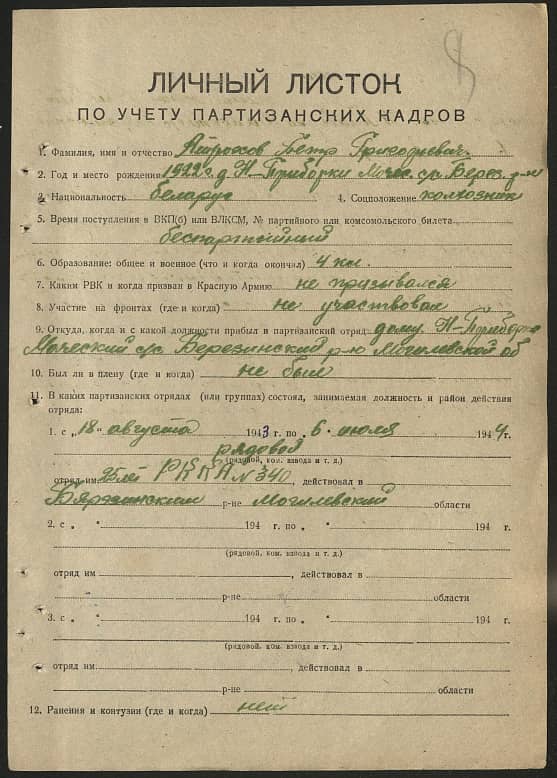 ЛИЧНЫЙ ЛИСТОК
ПО УЧЕТУ ПАРТИЗАНСКИХ КАДРОВ
1. Фамилия, имя и отчество Петр Григорьевич
2. Год и место рождения 1922 г. д. Н-Приборки Мочес. с/с Берез. р-н
3. Национальность беларус 4. Соцположение колхозник
5. Время поступления в ВКП(б) или ВЛКСМ, № партийного или комсомольского билета
беспартийный
6. Образование: общее и военное (что и когда окончал) 4 кл.
7. Каким РВК и когда призван в Красную Армию не призывался
8. Участие на фронтах (где и когда) не участвовал
9. Откуда, когда и с какой должности прибыл в партизанский отряд дому Н-Приборки
Моческий с/с Березинский р-ю Могилевской об
10. Был ли в плену (где и когда) не был
11. В каких партизанских отрядах (или группах) состоял, занимаемая должность и район действия
отряда:
1. с „18" августа 1943 г. по „6" июля 1944 г.
рядовой
(рядовой, ком. взвода и т. д.)
отряд им 25 лет РККА № 340, действовал в
Бярезинским р-не Могилевский области
2. с „ " 194 г. по „ " 194 г.
(рядовой, ком. взвода и т. д.)
отряд им , действовал в
р-не области
3. с „ " 194 г. по „ " 194 г.
(рядовой, ком. взвода и т. д.)
отряд им , действовал в
р-не области
12. Ранения и контузии (где и когда) нет